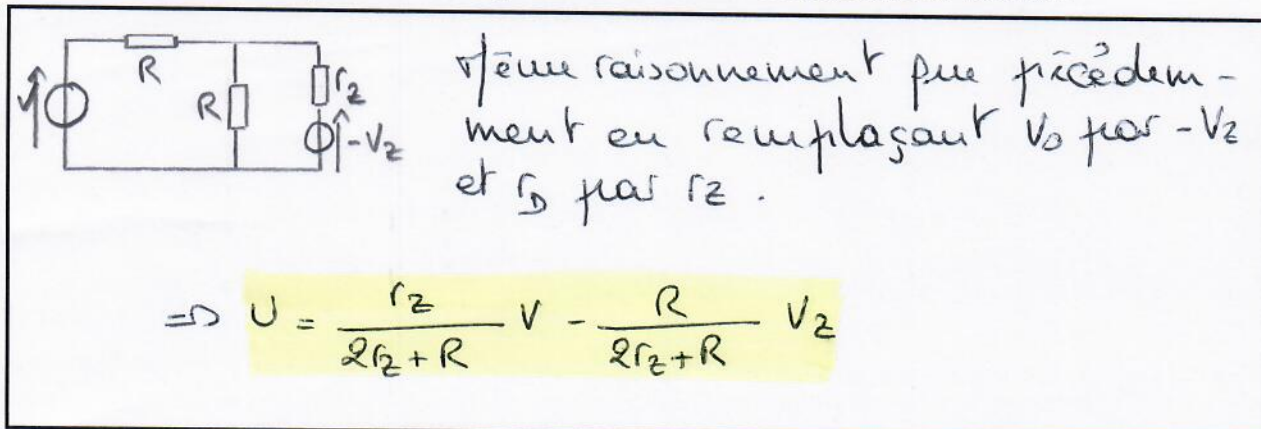 R
V
R
r_z
-V_z
Même raisonnement que précédem-
ment en remplaçant V_0 par -V_z
et r_D par r_z.
=> U = \frac{r_z}{2r_z + R} V - \frac{R}{2r_z + R} V_z